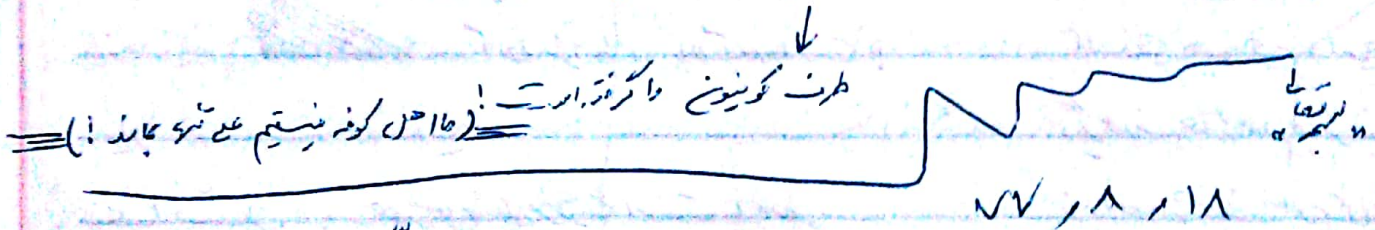 "بسمه تعالی"
طرف کوفیون را گرفته است! (ما اهل کوفه نیستیم علی تنها بماند!)
۷۷٫۸٫۱۸